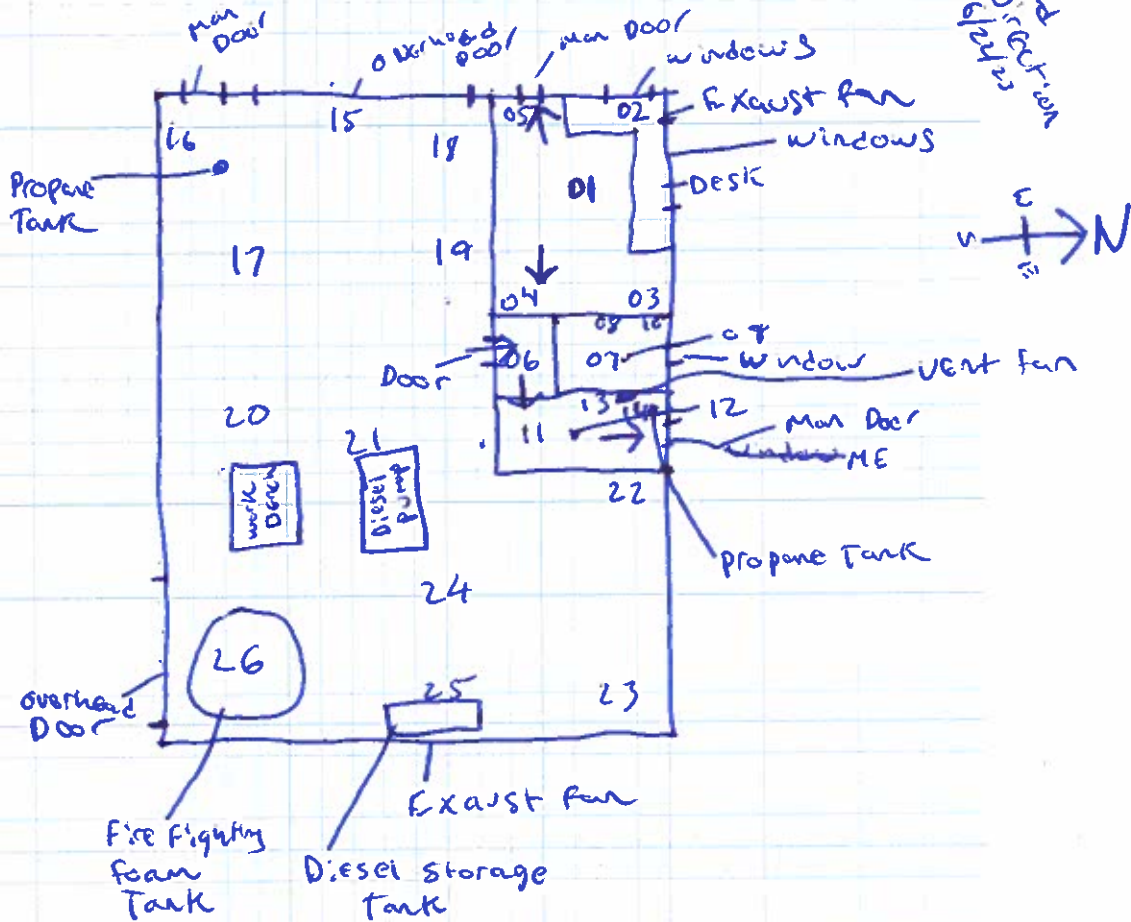 Man
Door
Overhead
Door
Man Door
windows
Direction
Exaust fan
windows
DESK
16
15
18
05
02
01
Propane
Tank
17
19
E
S
N
04
03
08
10
Door
06
07
09
window
vent fan
20
21
13
14
12
Man Door
11
window ME
work
Bench
Diesel
pump
22
propane Tank
24
26
25
23
overhead
Door
Exaust fan
Fire Fighting
foam
Tank
Diesel storage
Tank